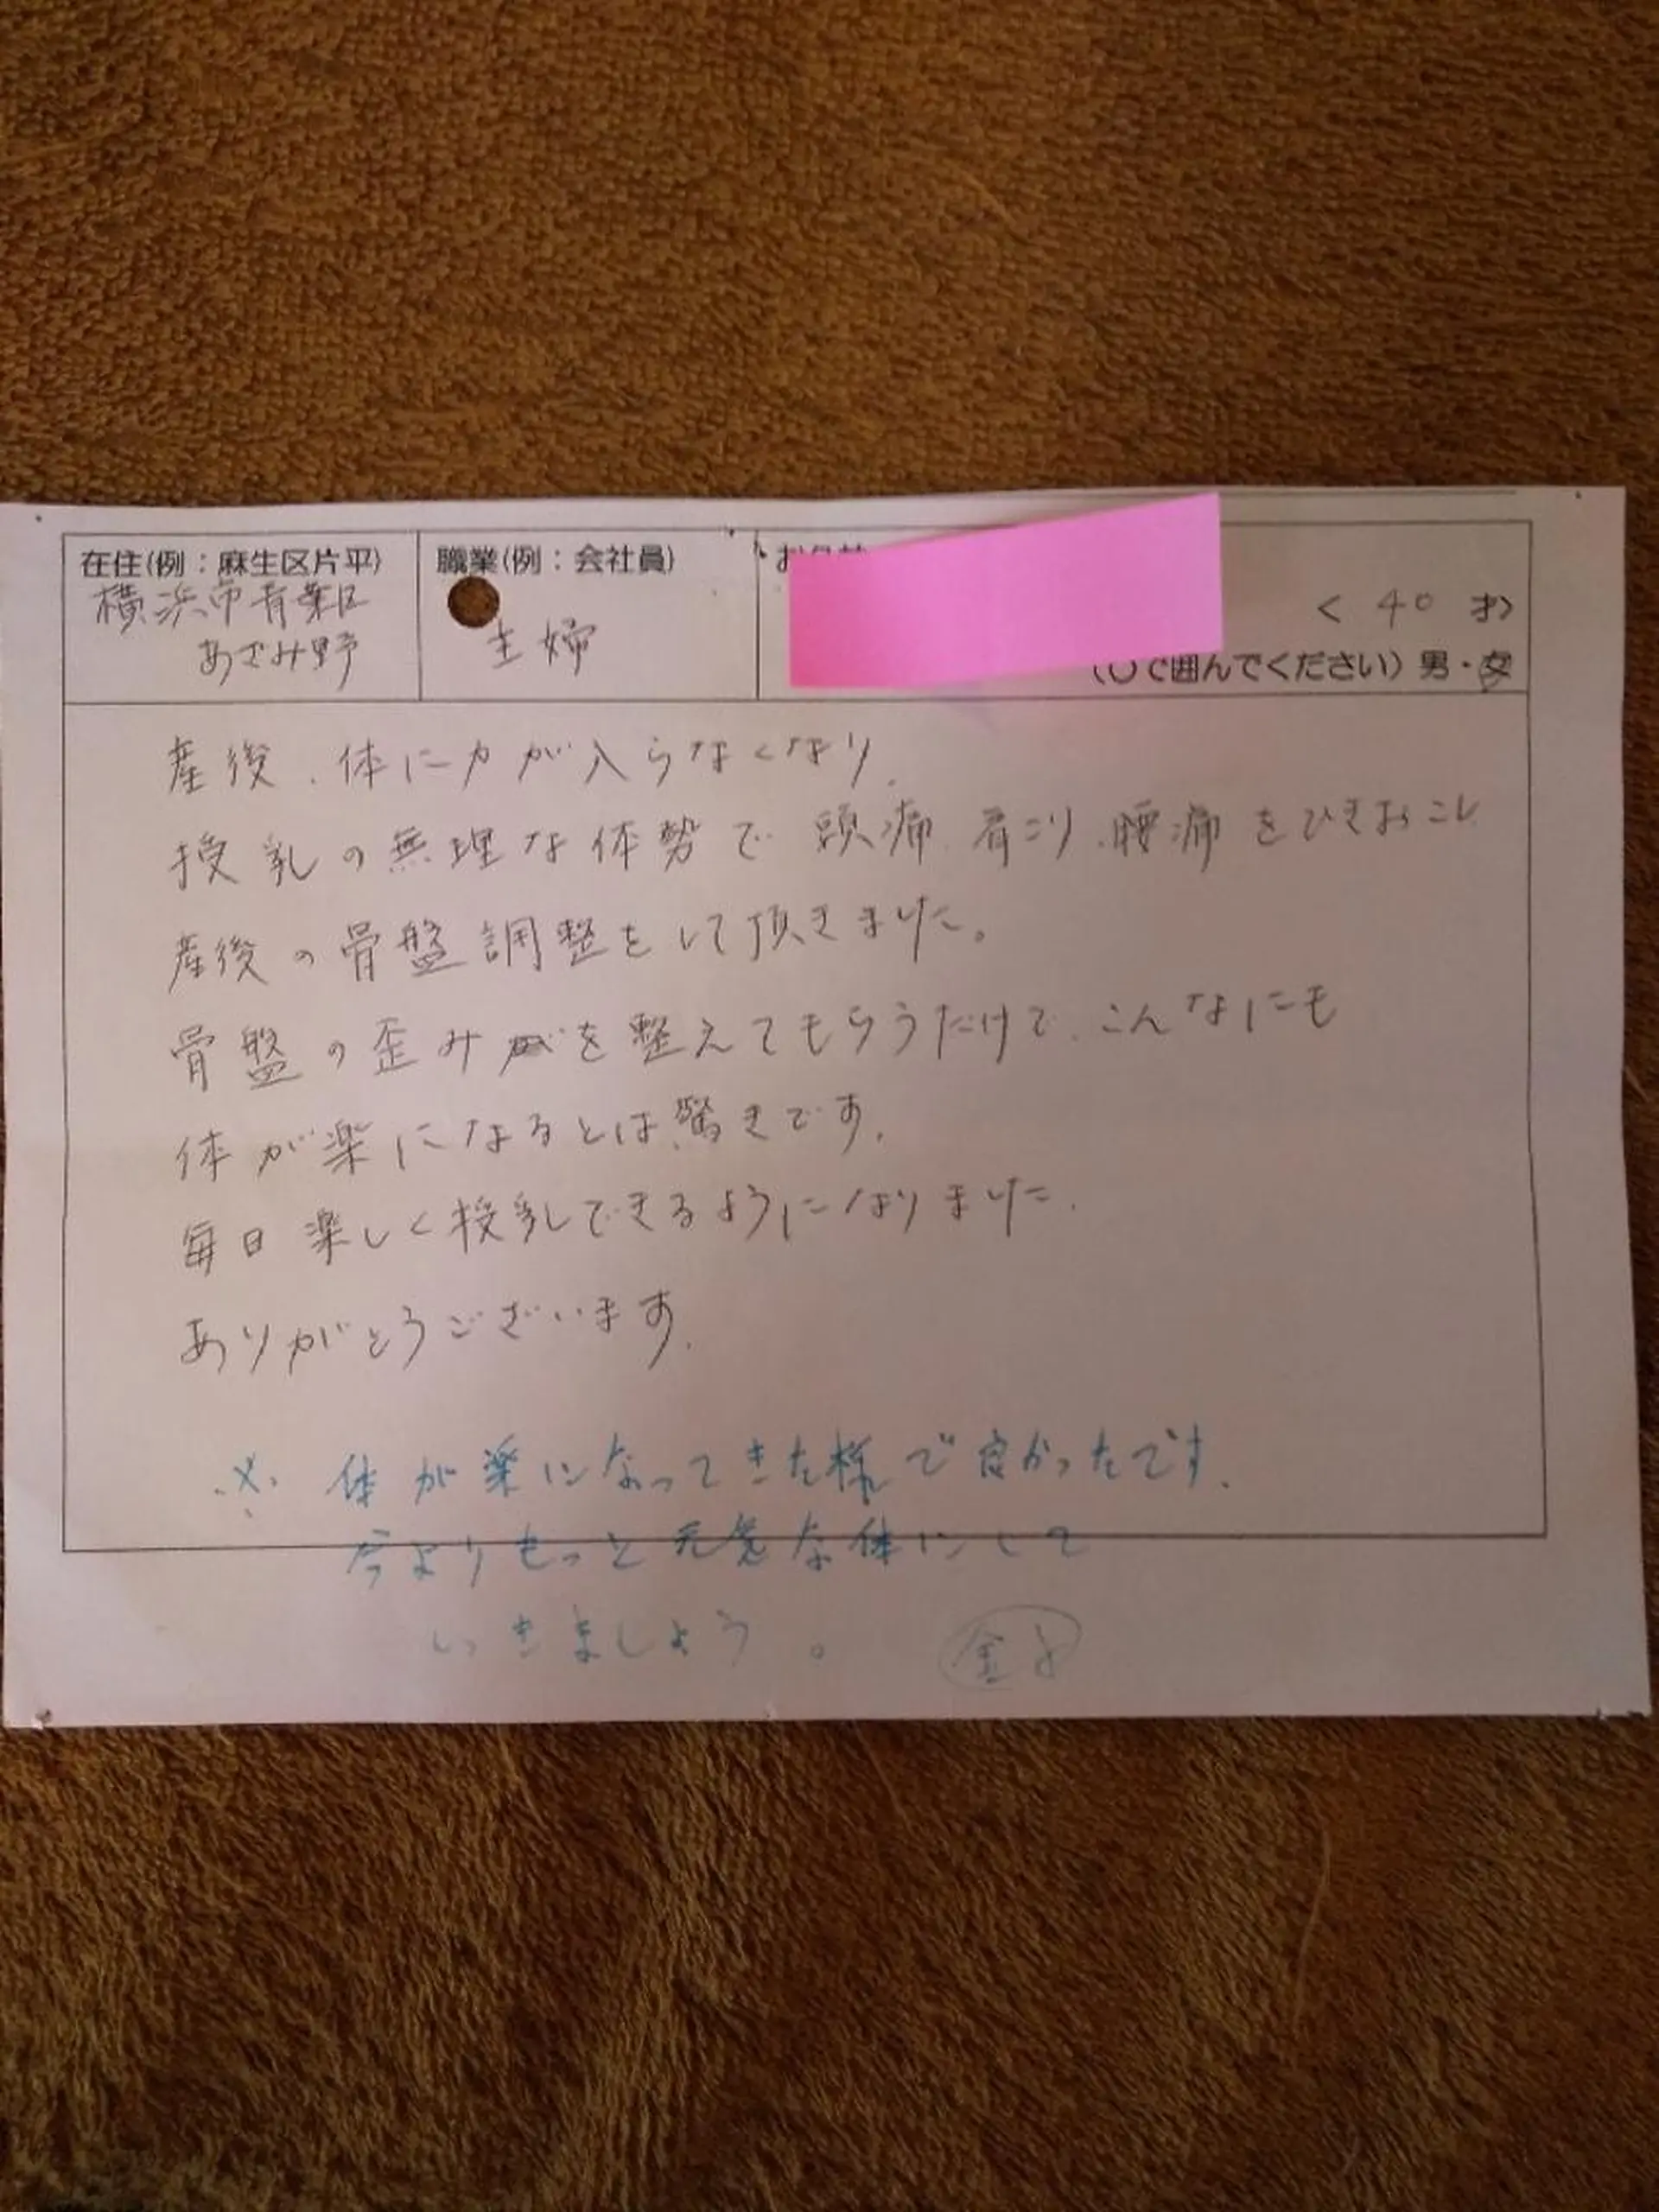 在住(例：麻生区片平)
横浜市青葉区
あざみ野
職業(例：会社員)
主婦
< 40 才>
で囲んでください) 男・女
産後、体に力が入らなくなり、
授乳の無理な体勢で 頭痛、肩こり、腰痛をひきおこし
産後の骨盤調整をして頂きました。
骨盤の歪みを整えてもらうだけで、こんなにも
体が楽になるとは驚きです。
毎日楽しく授乳できるようになりました。
ありがとうございます。
※ 体が楽になってきた様で良かったです。
今よりもっと元気な体にして
いきましょう。 金子